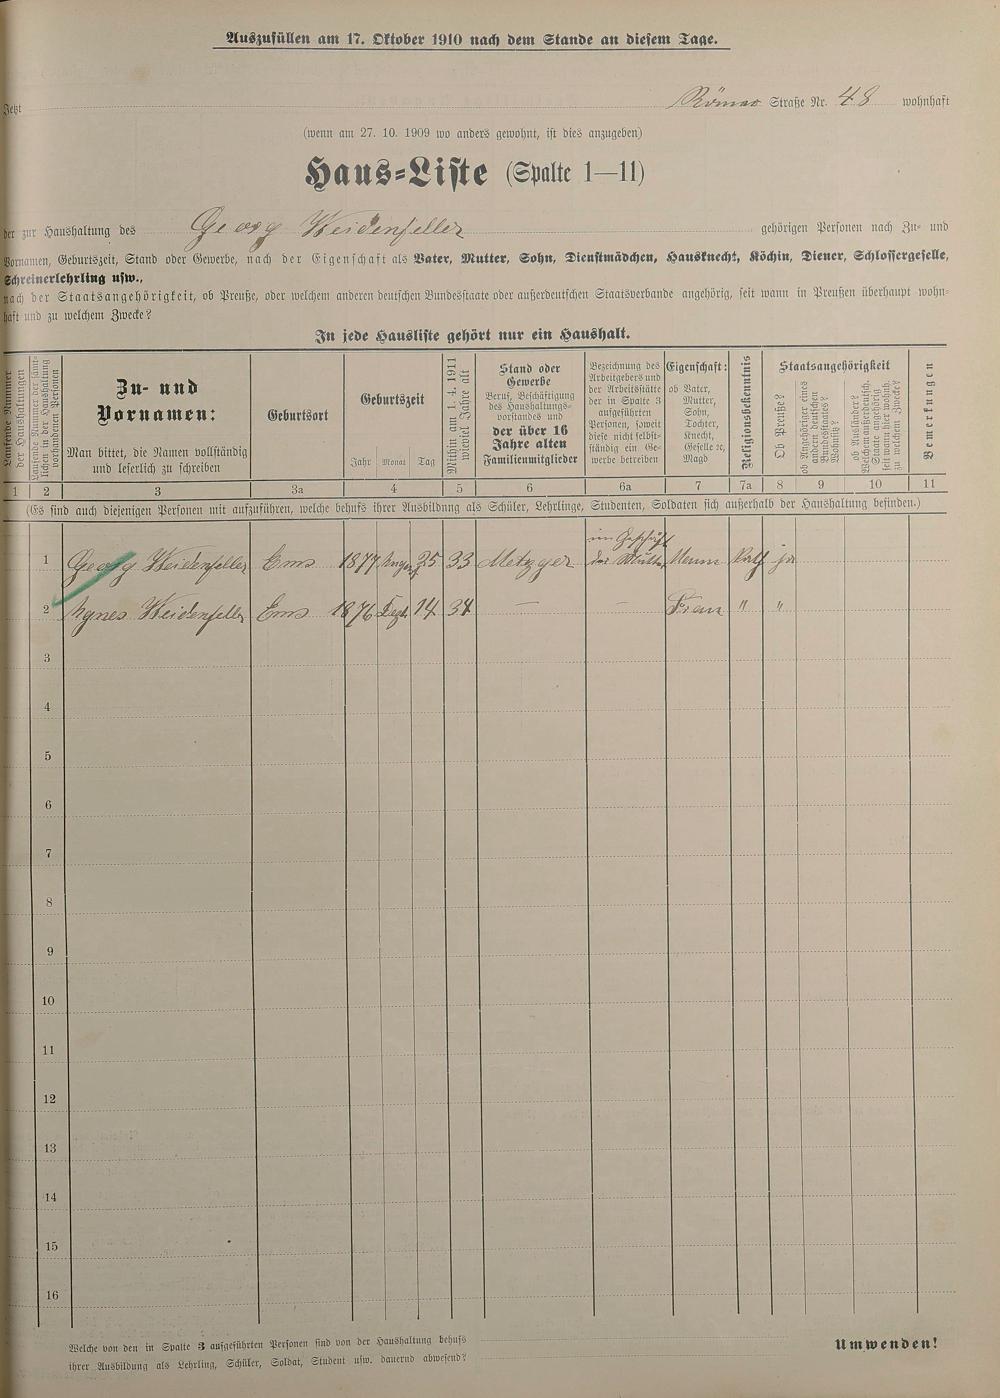 Auszufüllen am 17. Oktober 1910 nach dem Stande an diesem Tage.
Jetzt Römer Straße Nr. 48 wohnhaft
(wenn am 27. 10. 1909 wo anders gewohnt, ist dies anzugeben)
Haus-Liste (Spalte 1—11)
der zur Haushaltung des Georg Weidenfeller gehörigen Personen nach Zu- und
Vornamen, Geburtszeit, Stand oder Gewerbe, nach der Eigenschaft als Vater, Mutter, Sohn, Dienstmädchen, Hausknecht, Köchin, Diener, Schlossergeselle,
Schreinerlehrling usw.,
nach der Staatsangehörigkeit, ob Preuße, oder welchem anderen deutschen Bundesstaate oder außerdeutschen Staatsverbande angehörig, seit wann in Preußen überhaupt wohn-
haft und zu welchem Zwecke?
In jede Hausliste gehört nur ein Haushalt.
Laufende Nummer
der Haushaltungen
Laufende Nummer der sämt-
lichen in der Haushaltung
vorhandenen Personen
Zu- und
Vornamen:
Man bittet, die Namen vollständig
und leserlich zu schreiben
Geburtsort
Geburtszeit
Jahr Monat Tag
Mithin am 1. 4. 1911
wieviel Jahre alt
Stand oder
Gewerbe
Beruf, Beschäftigung
des Haushaltungs-
vorstandes und
der über 16
Jahre alten
Familienmitglieder
Bezeichnung des
Arbeitgebers und
der Arbeitsstätte
der in Spalte 3
aufgeführten
Personen, soweit
diese nicht selbst-
ständig ein Ge-
werbe betreiben
Eigenschaft:
ob Vater,
Mutter,
Sohn,
Tochter,
Knecht,
Geselle ꝛc,
Magd
Religionsbekenntnis
Staatsangehörigkeit
Ob Preuße?
ob Angehöriger eines
andern deutschen
Bundesstaates?
Wohnsitz?
ob Ausländer?
Welchem außerdeutsch.
Staate angehörig
seit wann hier wohnh.
zu welchem Zwecke?
Bemerkungen
1 2 3 3a 4 5 6 6a 7 7a 8 9 10 11
(Es sind auch diejenigen Personen mit aufzuführen, welche behufs ihrer Ausbildung als Schüler, Lehrlinge, Studenten, Soldaten sich außerhalb der Haushaltung befinden.)
im Geschäft
1 Georg Weidenfeller Ems 1877 August 25 33 Metzger der Mutter Mann Kath ja
2 Agnes Weidenfeller Ems 1876 Dezb. 14 34 — — Frau " "
3
4
5
6
7
8
9
10
11
12
13
14
15
16
Welche von den in Spalte 3 aufgeführten Personen sind von der Haushaltung behufs
ihrer Ausbildung als Lehrling, Schüler, Soldat, Student usw. dauernd abwesend?
Umwenden!